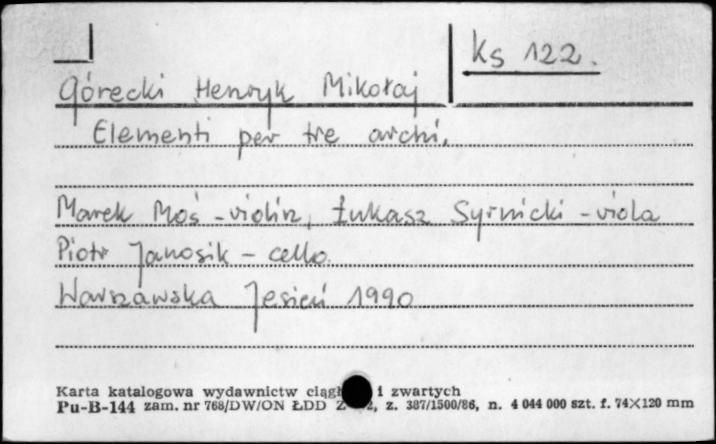 Ks 122.
Górecki Henryk Mikołaj
Elementi per tre archi.
Marek Moś - violin, Łukasz Syrnicki - viola
Piotr Janosik - cello.
Warszawska Jesień 1990
Karta katalogowa wydawnictw i zwartych
Pu-B-144 zam. nr 768/DW/ON ŁDD z. 387/1500/86, n. 4 044 000 szt. f. 74×120 mm